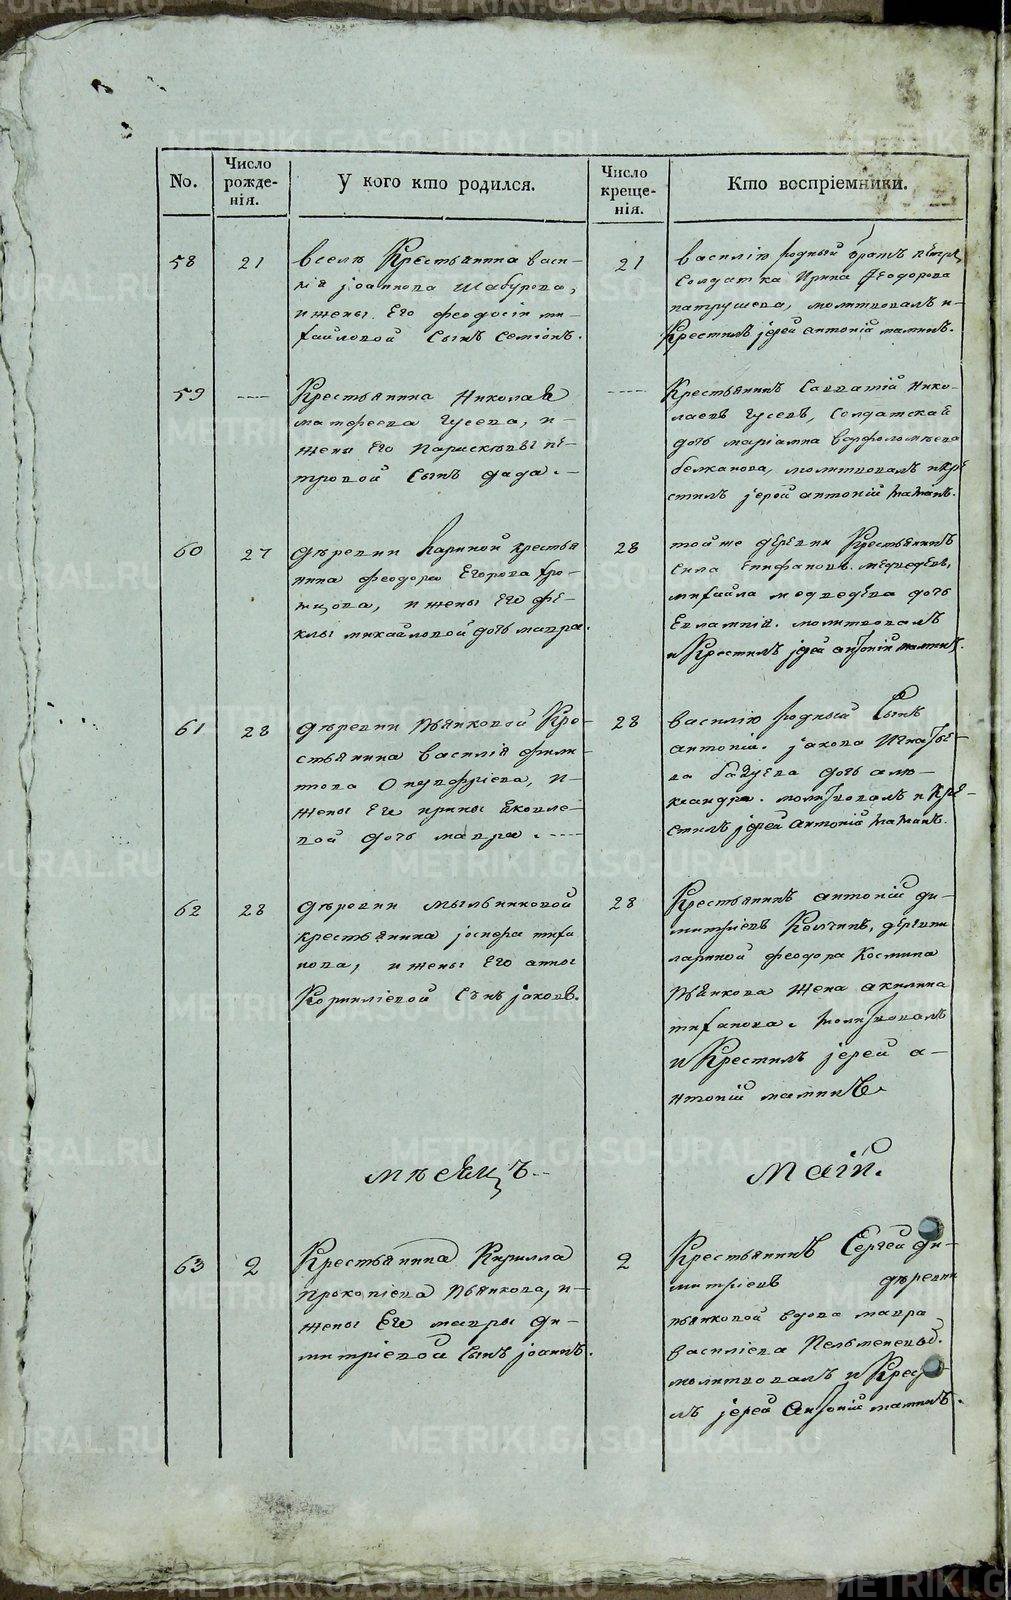 METRIKI.GASO-URAL.RU
No.
Число рожде-нія.
У кого кто родился.
Число креще-нія.
Кто воспріемники.
58
21
вселѣ Крестьянина васи-
лія іоаннова Шабурова,
и жены Его феодосіи ми-
хайловой Сынъ Семіонъ.
21
василію родный братъ петръ,
Солдатка Ирина Феодорова
патрушева, молитвовалъ и
Крестилъ іерей антоній маминъ.
59
Крестьянина Николая
матфеева Гусева, и
жены Его Параскевы пе-
тровой Сынъ
Крестьянинъ Савватій Нико-
лаевъ Гусевъ, Солдатская
дочь маріамна варфоломѣева
белканова, молитвовалъ и кре
стилъ іерей антоній маминъ.
60
27
дѣревни Лариной крестья
нина феодора Егорова
и жены Его фе-
клы михайловой дочь мавра.
28
той же деревни Крестьянинъ
Сила Епифановъ медведевъ,
михаила медведева дочь
Евлампія. молитвовалъ
и Крестилъ іерей антоній маминъ.
61
28
дѣревни Пьянковой Кре-
стьянина василія фили-
пова Онуфріева, и
жены Его ирины яковле-
вой дочь мавра.
28
василію родный Сынъ
антоній. іакова Игнатье-
ва дочь але-
ксандра. молитвовалъ и Кре-
стилъ іерей антоній маминъ.
62
28
дѣревни мыльниковой
крестьянина іосифа тиха
нова, и жены Его анны
Корниліевой Сынъ іаковъ.
28
Крестьянинъ антоній ди-
митріевъ Колчинъ, деревни
лариной феодора Космина
Пьянкова жена акилина
тиханова. молитвовалъ
и Крестилъ іерей а-
нтоній маминъ.
мѣсяцъ
маій.
63
2
Крестьянина Кирилла
прокопіева Пьянкова, и
жены Его мавры ди-
митріевой Сынъ іоаннъ.
2
Крестьянинъ Сергей ди-
митріевъ дѣревни
пьянковой вдова мавра
василіева Пельменева.
молитвовалъ и Крести
лъ іерей Антоній маминъ.